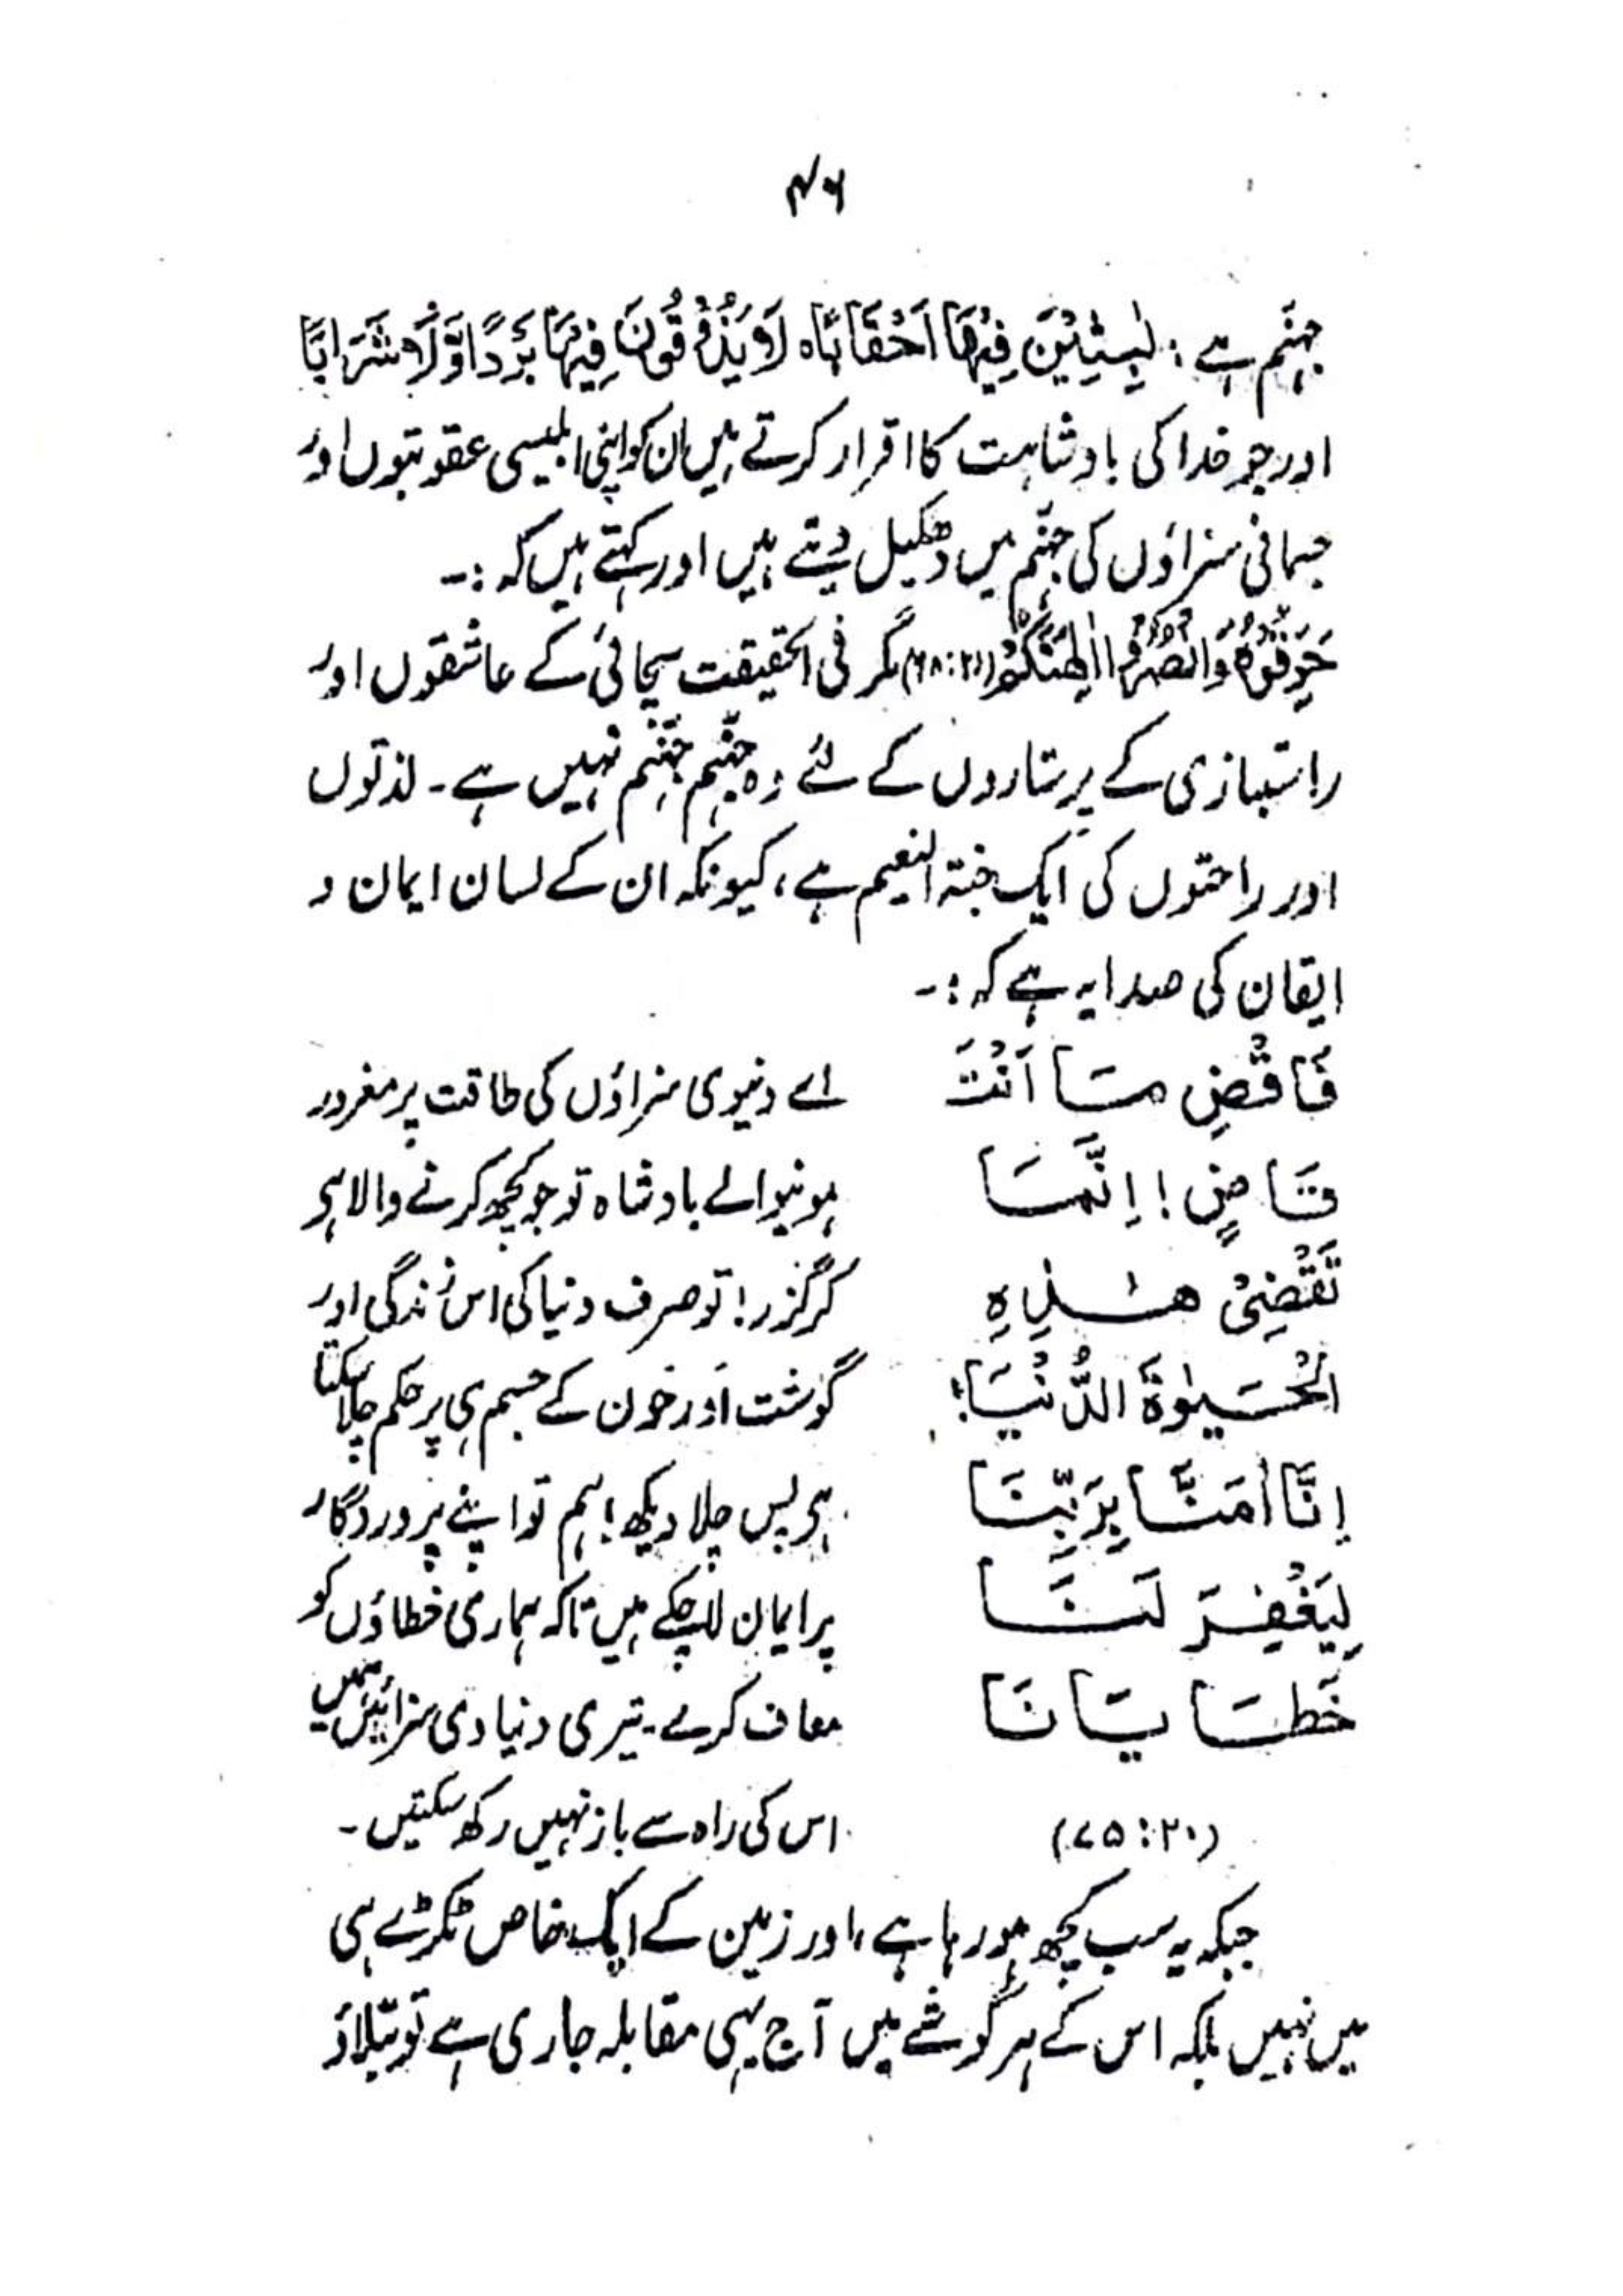 ۴۶
جہنم ہے: لٰبِثِیْنَ فِیْهَا اَحْقَابًا ہ لَا یَذُوْقُوْنَ فِیْهَا بَرْدًا وَّلَا شَرَابًا
اور جو خدا کی بادشاہت کا اقرار کرتے ہیں ان کو اپنی ابلیسی عقوبتوں اور
جسمانی سزاؤں کی جہنّم میں دھکیل دیتے ہیں اور کہتے ہیں کہ :۔
حَرِّقُوْهُ وَانْصُرُوْا اٰلِهَتَكُمْ (۲۱:۶۸) مگر فی الحقیقت سچائی کے عاشقوں اور
راستبازی کے پرستاروں کے لئے وہ جہنّم جہنّم نہیں ہے۔ لذتوں
اور راحتوں کی ایک جنۃ النعیم ہے، کیونکہ ان کے لسان ایمان و
ایقان کی صدا یہ ہے کہ :۔
فَاقْضِ مَا اَنْتَ
قَاضٍ! اِنَّمَا
تَقْضِیْ هٰذِهِ
الْحَیٰوةَ الدُّنْیَا؛
اِنَّا اٰمَنَّا بِرَبِّنَا
لِیَغْفِرَ لَنَا
خَطَایَانَا
(۲۰:۷۵)
اے دنیوی سزاؤں کی طاقت پر مغرور
ہونیوالے بادشاہ تو جو کچھ کرنے والا ہی
کر گزر! تو صرف دنیا کی اس زندگی اور
گوشت اور خون کے جسم ہی پر حکم چلا سکتا
ہی بس چلا دیکھ! ہم تو اپنے پروردگار
پر ایمان لا چکے ہیں تاکہ ہماری خطاؤں کو
معاف کرے۔ تیری دنیاوی سزائیں ہمیں
اس کی راہ سے باز نہیں رکھ سکتیں۔
جبکہ یہ سب کچھ ہو رہا ہے، اور زمین کے ایک خاص ٹکڑے ہی
میں نہیں بلکہ اس کے ہر گوشے میں آج یہی مقابلہ جاری ہے تو بتلاؤ